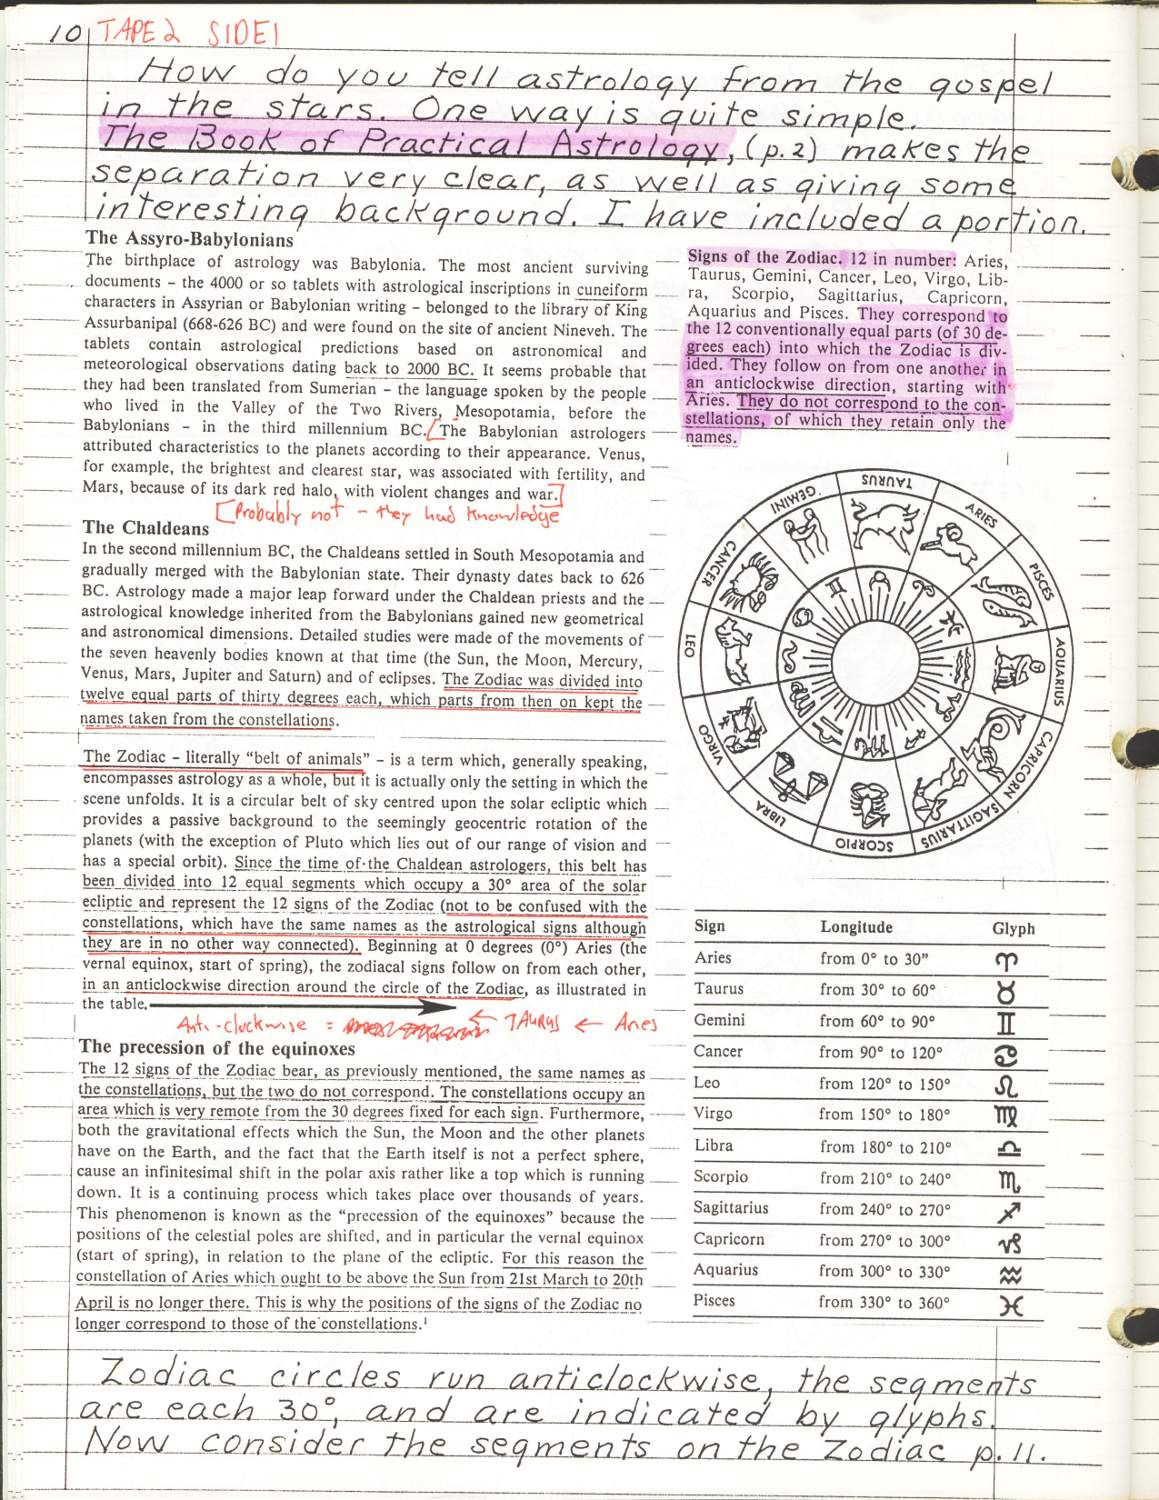 10 TAPE 2 SIDE 1
How do you tell astrology from the gospel
in the stars. One way is quite simple.
The Book of Practical Astrology, (p.2) makes the
separation very clear, as well as giving some
interesting background. I have included a portion.
The Assyro-Babylonians
The birthplace of astrology was Babylonia. The most ancient surviving
documents – the 4000 or so tablets with astrological inscriptions in cuneiform
characters in Assyrian or Babylonian writing – belonged to the library of King
Assurbanipal (668-626 BC) and were found on the site of ancient Nineveh. The
tablets contain astrological predictions based on astronomical and
meteorological observations dating back to 2000 BC. It seems probable that
they had been translated from Sumerian – the language spoken by the people
who lived in the Valley of the Two Rivers, Mesopotamia, before the
Babylonians – in the third millennium BC. [The Babylonian astrologers
attributed characteristics to the planets according to their appearance. Venus,
for example, the brightest and clearest star, was associated with fertility, and
Mars, because of its dark red halo, with violent changes and war.]
[Probably not – they had knowledge
The Chaldeans
In the second millennium BC, the Chaldeans settled in South Mesopotamia and
gradually merged with the Babylonian state. Their dynasty dates back to 626
BC. Astrology made a major leap forward under the Chaldean priests and the
astrological knowledge inherited from the Babylonians gained new geometrical
and astronomical dimensions. Detailed studies were made of the movements of
the seven heavenly bodies known at that time (the Sun, the Moon, Mercury,
Venus, Mars, Jupiter and Saturn) and of eclipses. The Zodiac was divided into
twelve equal parts of thirty degrees each, which parts from then on kept the
names taken from the constellations.
The Zodiac – literally “belt of animals” – is a term which, generally speaking,
encompasses astrology as a whole, but it is actually only the setting in which the
scene unfolds. It is a circular belt of sky centred upon the solar ecliptic which
provides a passive background to the seemingly geocentric rotation of the
planets (with the exception of Pluto which lies out of our range of vision and
has a special orbit). Since the time of the Chaldean astrologers, this belt has
been divided into 12 equal segments which occupy a 30° area of the solar
ecliptic and represent the 12 signs of the Zodiac (not to be confused with the
constellations, which have the same names as the astrological signs although
they are in no other way connected). Beginning at 0 degrees (0°) Aries (the
vernal equinox, start of spring), the zodiacal signs follow on from each other,
in an anticlockwise direction around the circle of the Zodiac, as illustrated in
the table.
Anti-clockwise = ← TAURUS ← Aries
The precession of the equinoxes
The 12 signs of the Zodiac bear, as previously mentioned, the same names as
the constellations, but the two do not correspond. The constellations occupy an
area which is very remote from the 30 degrees fixed for each sign. Furthermore,
both the gravitational effects which the Sun, the Moon and the other planets
have on the Earth, and the fact that the Earth itself is not a perfect sphere,
cause an infinitesimal shift in the polar axis rather like a top which is running
down. It is a continuing process which takes place over thousands of years.
This phenomenon is known as the “precession of the equinoxes” because the
positions of the celestial poles are shifted, and in particular the vernal equinox
(start of spring), in relation to the plane of the ecliptic. For this reason the
constellation of Aries which ought to be above the Sun from 21st March to 20th
April is no longer there. This is why the positions of the signs of the Zodiac no
longer correspond to those of the constellations.¹
Signs of the Zodiac. 12 in number: Aries,
Taurus, Gemini, Cancer, Leo, Virgo, Lib-
ra, Scorpio, Sagittarius, Capricorn,
Aquarius and Pisces. They correspond to
the 12 conventionally equal parts (of 30 de-
grees each) into which the Zodiac is div-
ided. They follow on from one another in
an anticlockwise direction, starting with
Aries. They do not correspond to the con-
stellations, of which they retain only the
names.
TAURUS
ARIES
PISCES
AQUARIUS
CAPRICORN
SAGITTARIUS
SCORPIO
LIBRA
VIRGO
LEO
CANCER
GEMINI
Sign Longitude Glyph
Aries from 0° to 30” ♈
Taurus from 30° to 60° ♉
Gemini from 60° to 90° ♊
Cancer from 90° to 120° ♋
Leo from 120° to 150° ♌
Virgo from 150° to 180° ♍
Libra from 180° to 210° ♎
Scorpio from 210° to 240° ♏
Sagittarius from 240° to 270° ♐
Capricorn from 270° to 300° ♑
Aquarius from 300° to 330° ♒
Pisces from 330° to 360° ♓
Zodiac circles run anticlockwise, the segments
are each 30°, and are indicated by glyphs.
Now consider the segments on the Zodiac p. 11.